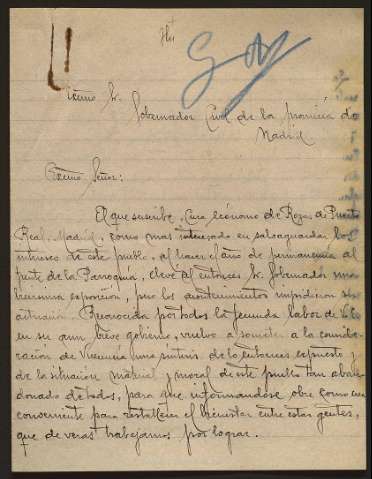 Excmo Sr.
Gobernador Civil de la provincia de
Madrid
Excmo Señor:
El que suscribe, Cura ecónomo de Rozas de Puerto
Real, Madrid, como mas interesado en salvaguardar los
intereses de este pueblo, al hacer el año de permanencia al
frente de la Parroquia, elevé al entonces Sr. Gobernador una
exposición, pero los acontecimientos impidieron su
actuación. Reconocida por todos la fecunda labor de V.E.
en su aun breve gobierno, vuelvo a someter a la conside-
racion de Vuecencia una sintesis de lo entonces expuesto y
de la situación material y moral de este pueblo tan aban-
donado de todos, para que informandose obre como crea
conveniente para restablecer el bienestar entre estas gentes,
que de veras trabajamos por lograr.